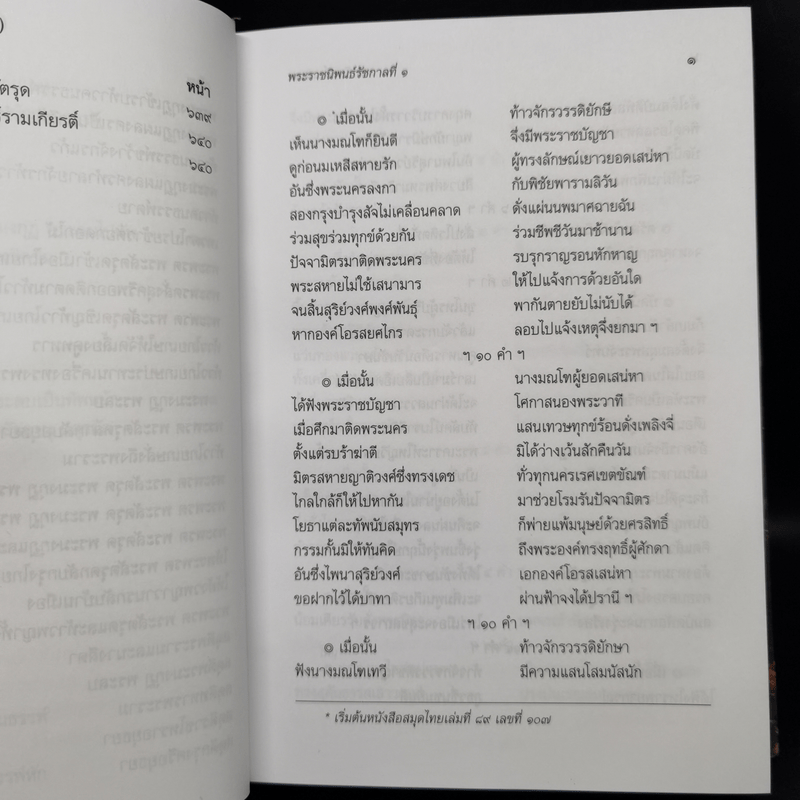 )
หน้า
ัตรุด ๖๓๙
์รามเกียรติ์ ๖๔๐
๖๔๐
พระราชนิพนธ์รัชกาลที่ ๑ ๑
๏ *เมื่อนั้น ท้าวจักรวรรดิยักษี
เห็นนางมณโฑก็ยินดี จึ่งมีพระราชบัญชา
ดูก่อนมเหสีสหายรัก ผู้ทรงลักษณ์เยาวยอดเสน่หา
อันซึ่งพระนครลงกา กับพิชัยพารามลิวัน
สองกรุงบำรุงสัจไม่เคลื่อนคลาด ดั่งแผ่นนพมาศฉายฉัน
ร่วมสุขร่วมทุกข์ด้วยกัน ร่วมชีพชีวันมาช้านาน
ปัจจามิตรมาติดพระนคร รบรุกราญรอนหักหาญ
พระสหายไม่ใช้เสนามาร ให้ไปแจ้งการด้วยอันใด
จนสิ้นสุริย์วงศ์พงศ์พันธุ์ พากันตายยับไม่นับได้
หากองค์โอรสยศไกร ลอบไปแจ้งเหตุจึ่งยกมา ฯ
ฯ ๑๐ คำ ฯ
๏ เมื่อนั้น นางมณโฑผู้ยอดเสน่หา
ได้ฟังพระราชบัญชา โศกาสนองพระวาที
เมื่อศึกมาติดพระนคร แสนเทวษทุกข์ร้อนดั่งเพลิงจี่
ตั้งแต่รบร้าฆ่าตี มิได้ว่างเว้นสักคืนวัน
มิตรสหายญาติวงศ์ซึ่งทรงเดช ทั่วทุกนครเรศเขตขัณฑ์
ไกลใกล้ก็ให้ไปหากัน มาช่วยโรมรันปัจจามิตร
โยธาแต่ละทัพนับสมุทร ก็พ่ายแพ้มนุษย์ด้วยศรสิทธิ์
กรรมกั้นมิให้ทันคิด ถึงพระองค์ทรงฤทธิ์ผู้ศักดา
อันซึ่งไพนาสุริย์วงศ์ เอกองค์โอรสเสน่หา
ขอฝากไว้ใต้บาทา ผ่านฟ้าจงได้ปรานี ฯ
ฯ ๑๐ คำ ฯ
๏ เมื่อนั้น ท้าวจักรวรรดิยักษา
ฟังนางมณโฑเทวี มีความแสนโสมนัสนัก
* เริ่มต้นหนังสือสมุดไทยเล่มที่ ๘๙ เลขที่ ๑๐๗